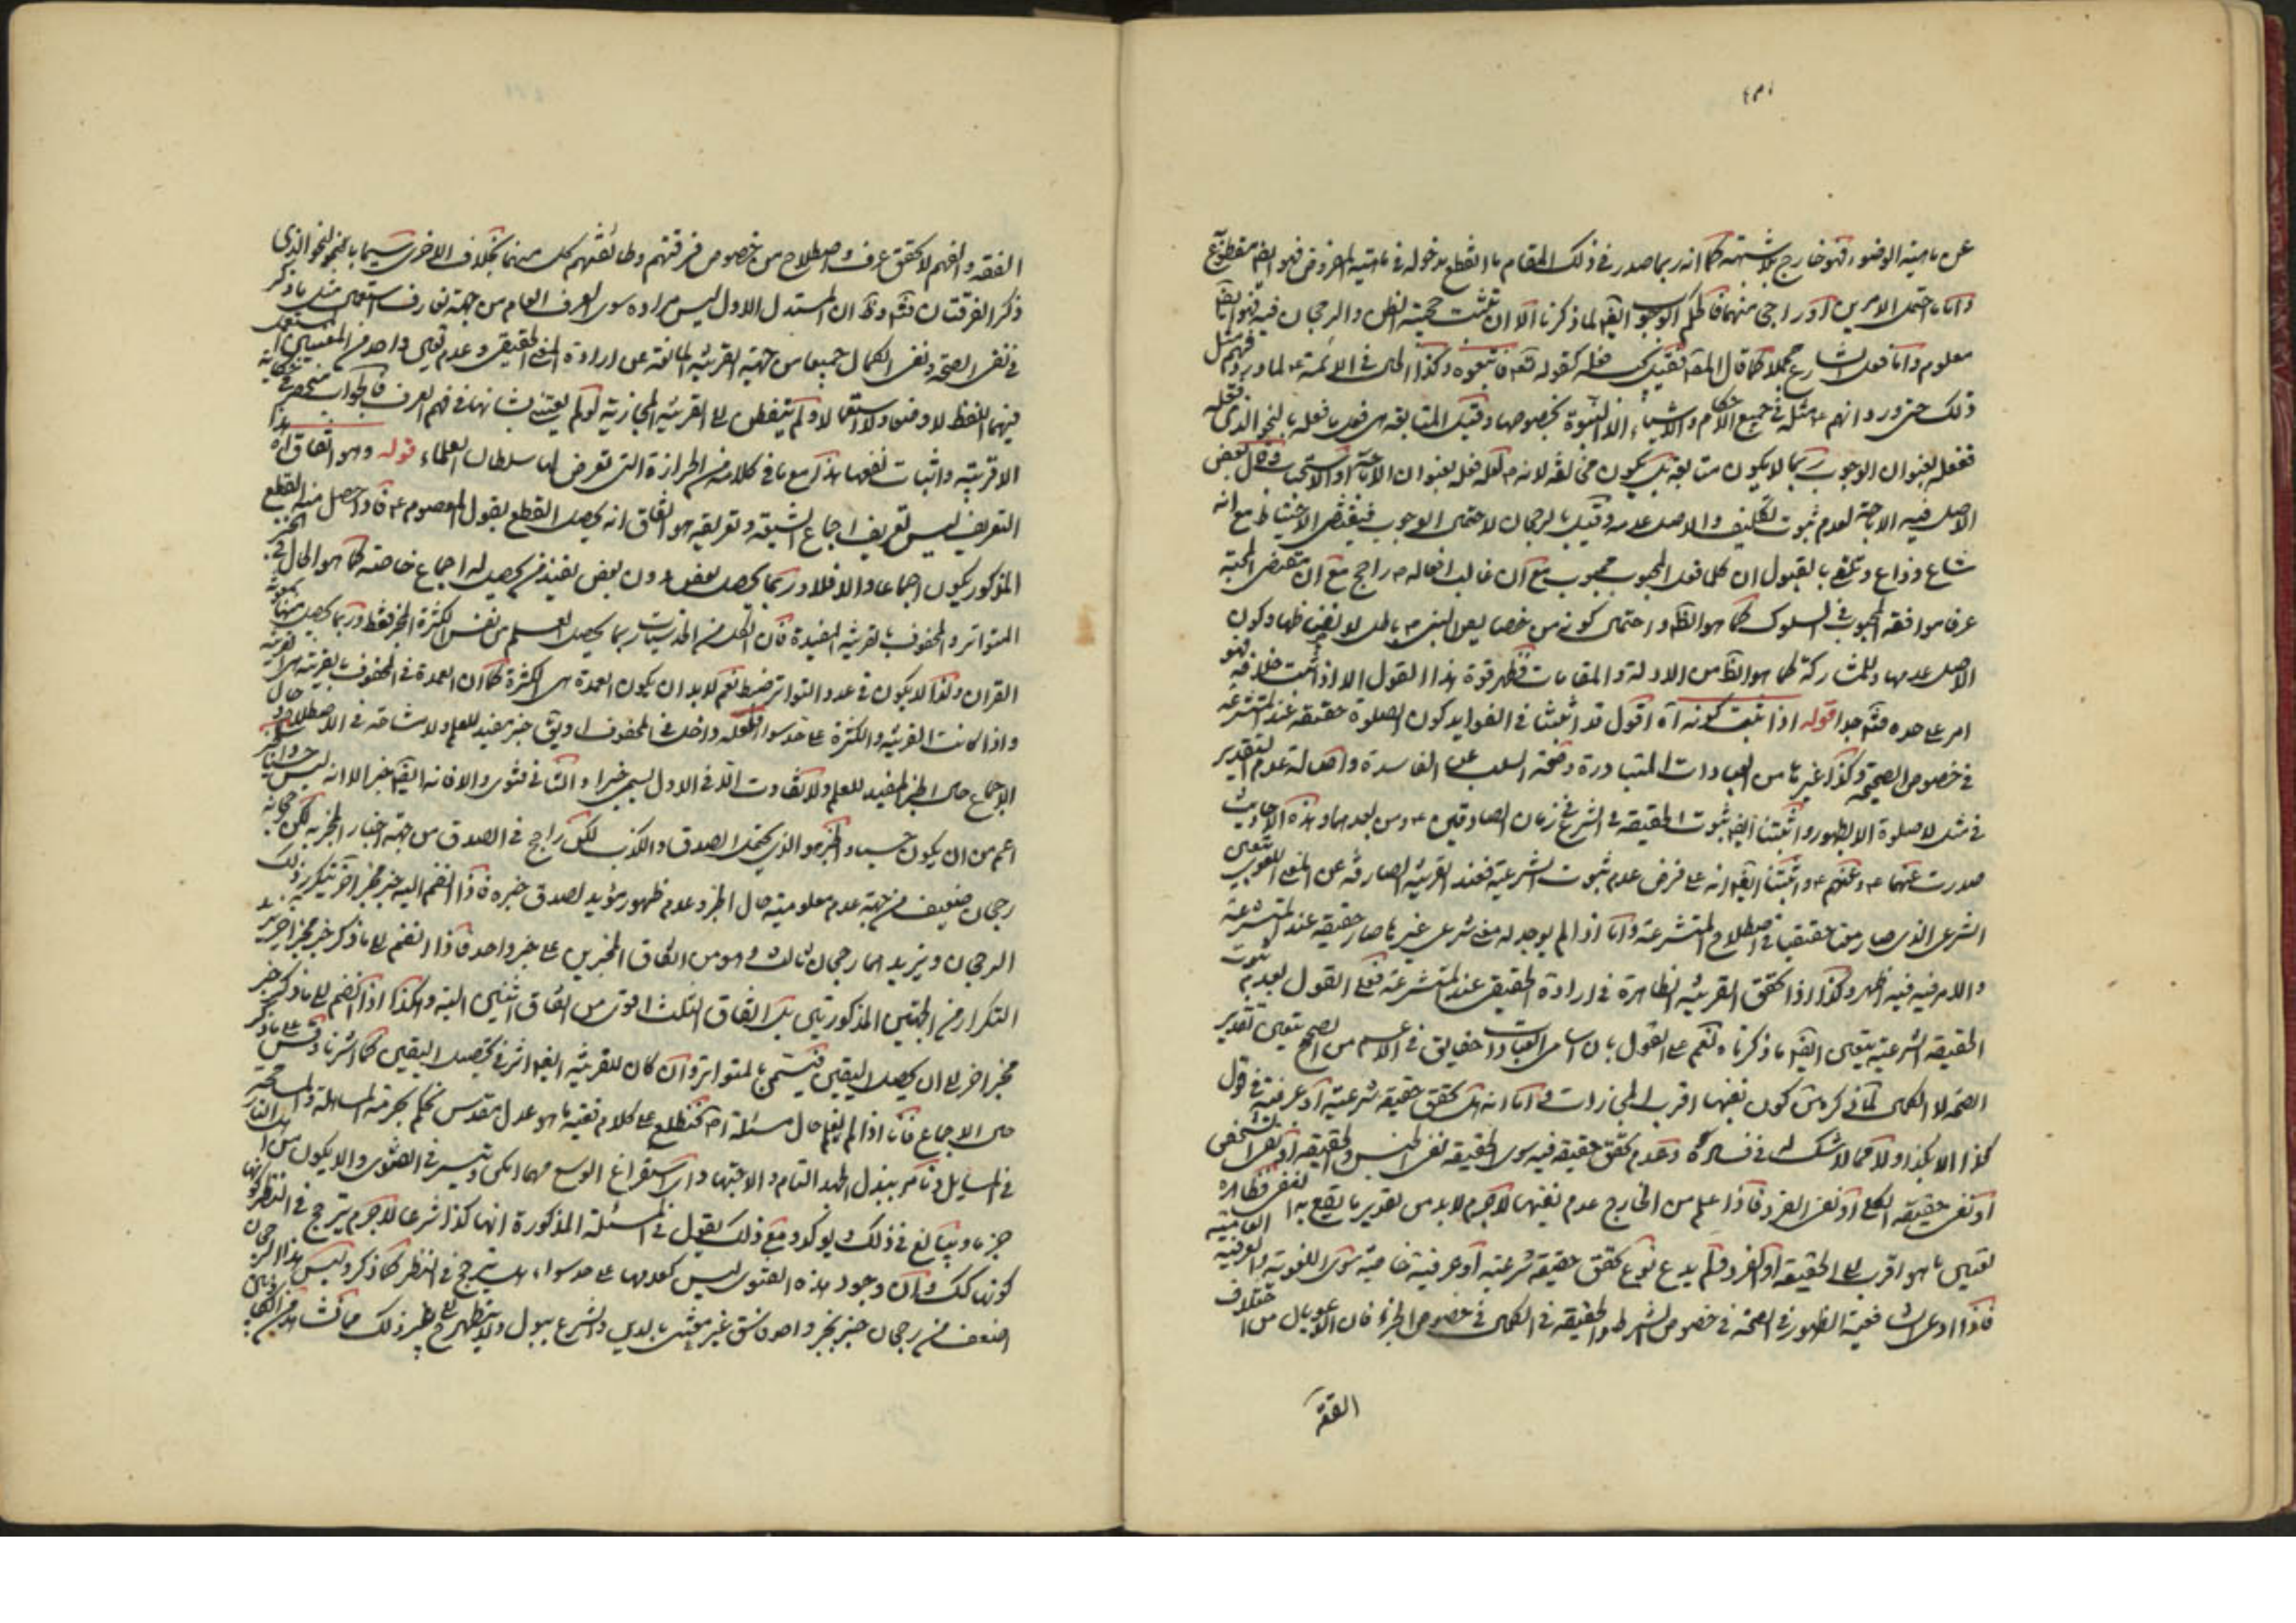 عن ماهية الوضوء فهو خارج بلا شبهة كما انه ربما صدر في ذلك المقام ما انقطع بدخوله في ماهية المفروض فهو ايضا مقطوع
واما ما احتمل الامرين او راجى منهما فالحكم الوجوب ايضا لما ذكرنا الا ان تثبت حجية الظن والرجحان فيه فهو ايضا
معلوم واما فعل الشارع مجملا كما قال المص فقيل كك فعله كقوله تعم فاتبعوه وكذا الحال في الائمة ع لما ورد
ذلك حتى ورد انهم ع مثله في جميع الاحكام والاشياء الا النبوة بخصوصها وقيل المتابعة هي فعل ما فعله بالنحو الذي فعله
ففعله بعنوان الوجوب ربما لا يكون متابعة بل يكون مخالفة لانه ص لعله فعله بعنوان الاباحة او الاستحباب وقال البعض
الاصل فيه الاباحة لعدم ثبوت تكليف والاصل عدمه وقيل بالرجحان لاحتمال الوجوب فيقتضي الاحتياط مع انه
شاع وذاع وتلقى بالقبول ان كلما فعل المحبوب محبوب مع ان غالب افعاله ص راجح مع ان مقتضى المحبة
عرفا موافقة المحبوب في السلوك كما هو الظ واحتمال كونه من خصايص النبي ص باطل لا يضر
الاصل عدمها وللمشاركة كما هو الظ من الادلة والمقامات فظهر قوة هذا القول الا اذا ثبت خلافه فهو
امر على حده فتم جدا قوله اذا ثبت كونه اه اقول قد اثبتنا في الفوايد كون الصلوة حقيقة عند المتشرعة
في خصوص الصحيحة وكذا غيرها من العبادات المتبادرة وصحة السلب عن الفاسدة واصالة عدم التقدير
في مثل لا صلوة الا بطهور واثبتنا ايضا ثبوت الحقيقة في الشرع في زمان الصادقين ع ومن بعدهما وهذه الاحاديث
صدرت عنهما ع وعنهم ع واثبتنا ايضا انه على فرض عدم ثبوت الشرعية فعند القرينة الصارفة عن المعنى اللغوي يتعين
الشرعي الذي صار معنا حقيقيا في اصطلاح المتشرعة واما اذا لم يوجد له معنى شرعي غير ما صار حقيقة عند المتشرعة
والامر فيه فيه اظهر وكذا اذا تحقق القرينة الظاهرة في ارادة الحقيقي عند المتشرعة فعلى القول بعدم ثبوت
الحقيقة الشرعية يتعين ايضا ما ذكرناه نعم على القول بان اسامي العبادات حقايق في الاعم من الصحيح يتعين تقدير
الصحة لا الكمال لما في كون نفيها اقرب المجازات في اما انه هل تحقق حقيقة شرعية او عرفية في قول
كذا الا بكذا ولا كما لا شك في فساده وعدم تحقق حقيقة فيه سوى الحقيقة نفي الجنس والحقيقة او نفي الشخص
او نفي حقيقة الكلي او نفي الفرد فاذا علم من الخارج عدم نفيها لا جرم لا بد من تقدير ما يقع به النفي فظاهره
تعين ما هو اقرب الى الحقيقة او الفرد فلم يدع نوع تحقق حقيقة شرعية او عرفية خاصة سوى اللغوية والعرفية العامة
فاذا ادعى الشافعية الظهور في الصحة في خصوص الشرط والحقيقة في الكمال في خصوص الجزء فان
الفقه
الفقه والفهم لا تحقق عرف واصطلاح من خصوص فرقتهم وطائفتهم كل منهما بخلاف الاخرى سيما بالنحو الذي
ذكر الفرقتان فتم وظ ان المستدل الاول ليس مراده سوى العرف العام من جهة تعارف استعمال مثل ما ذكر
في نفي الصحة ونفي الكمال جميعا من جهة القرينة المانعة عن ارادة المعنى الحقيقي وعدم تعين واحد من المعنيين
فيهما للفظ لا وضعا ولا استعمالا ولم يتفطن الى القرينة المجازية ولم يعتن بشانها في فهم العرف فالجواب منحصر في
الاقربية واثبات نفعها هذا مع ما في كلامه من الحزازة التي تعرض لها سلطان العلماء قوله وهو اتفاق اه هذا
التعريف ليس تعريف اجماع الشيعة وتعريفه هو اتفاق انه يحصل القطع بقول المعصوم ع فاذا حصل منه القطع
المذكور يكون اجماعا والا فلا وربما يحصل لبعض دون بعض فعند من يحصل له اجماع خاصة كما هو الحال في الخبر
المتواتر والمحفوف بالقرينة المفيدة فان الكل من الحدسيات ربما يحصل العلم من نفس الكثرة المخبر فقط وربما يحصل منها بمعونة
القرائن ولذا لا يكون في عدد التواتر ضبط نعم لا بد ان يكون العمدة هي الكثرة كما ان العمدة في المحفوف بقرينة هي القرينة
واذا كانت القرينة والكثرة على حد سوا فلعله داخل في المحفوف او يق خبر مفيد للعلم ولا مشاحة في الاصطلاح وحال
الاجماع حال الخبر المفيد للعلم ولا تفاوت الا في الاول يسمى خبرا والثاني فتوى والا فانه ايضا خبر الا انه ليس
اعم من ان يكون حسيا والخبر هو الذي يحتمل الصدق والكذب لكن راجح في الصدق من جهة اخبار المخبر به لكن
رجحان ضعيف من جهة عدم معلومية حال المخبر وعدم ظهور مؤيد لصدق خبره فاذا انضم اليه خبر مخبر اخر يتكرر ذلك
الرجحان ويزيد هنا رجحان ثالث وهو من اتفاق المخبرين على خبر واحد فاذا انضم الى ما ذكر خبر مخبر اخر يزيد
التكرار من الجهتين المذكورتين بل اتفاق الثلث اقوى من اتفاق اثنين البتة وهكذا اذا انضم الى ما ذكر خبر
مخبر اخر الى ان يحصل اليقين فيسمى بالمتواتر وان كان للقرينة ايضا اثر في تحصيل اليقين كما اشرنا وقس على ما ذكر
حال الاجماع فانا اذا لم نعلم حال مسئلة اصلا فنطلع على كلام فقيه ماهر عدل مقدس يحكم بحرمة المساهلة والمسامحة
في المسايل ويامر ببذل الجهد التام والاجتهاد واستفراغ الوسع مهما امكن وتيسر في الفتوى والا يكون من اهل النار
جزما ويبالغ في ذلك ويؤكد ومع ذلك يقول في المسئلة المذكورة انها كذا شرعا لا جرم يترجح في النظر كونها
كونها كك وان وجود هذه الفتوى ليس كعدمها على حد سواء بل يترجح في النظر كما ذكر وليس هذا الرجحان
اضعف من رجحان خبر بخبر واحد فاسق غير معتن بالدين والشرع